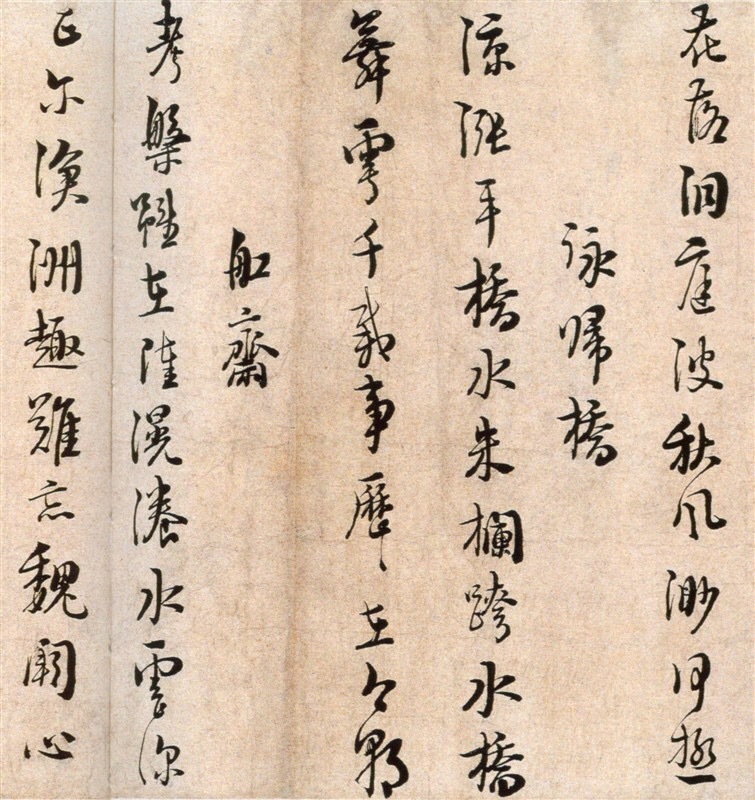 花落洞庭波秋風渺何極
詠歸橋
淥漲平橋水朱欄跨水橋
舞雩千載事歷々在今朝
船齋
考槃雖在陸滉瀁水雲深
正爾滄洲趣難忘魏闕心